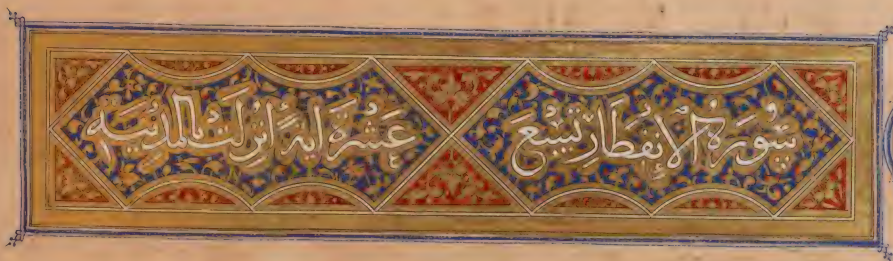 سُورَةُ الْاِنْفِطَارِ تِسْعَ عَشْرَةَ اٰيَةً اُنْزِلَتْ بِالْمَدِيْنَةِ